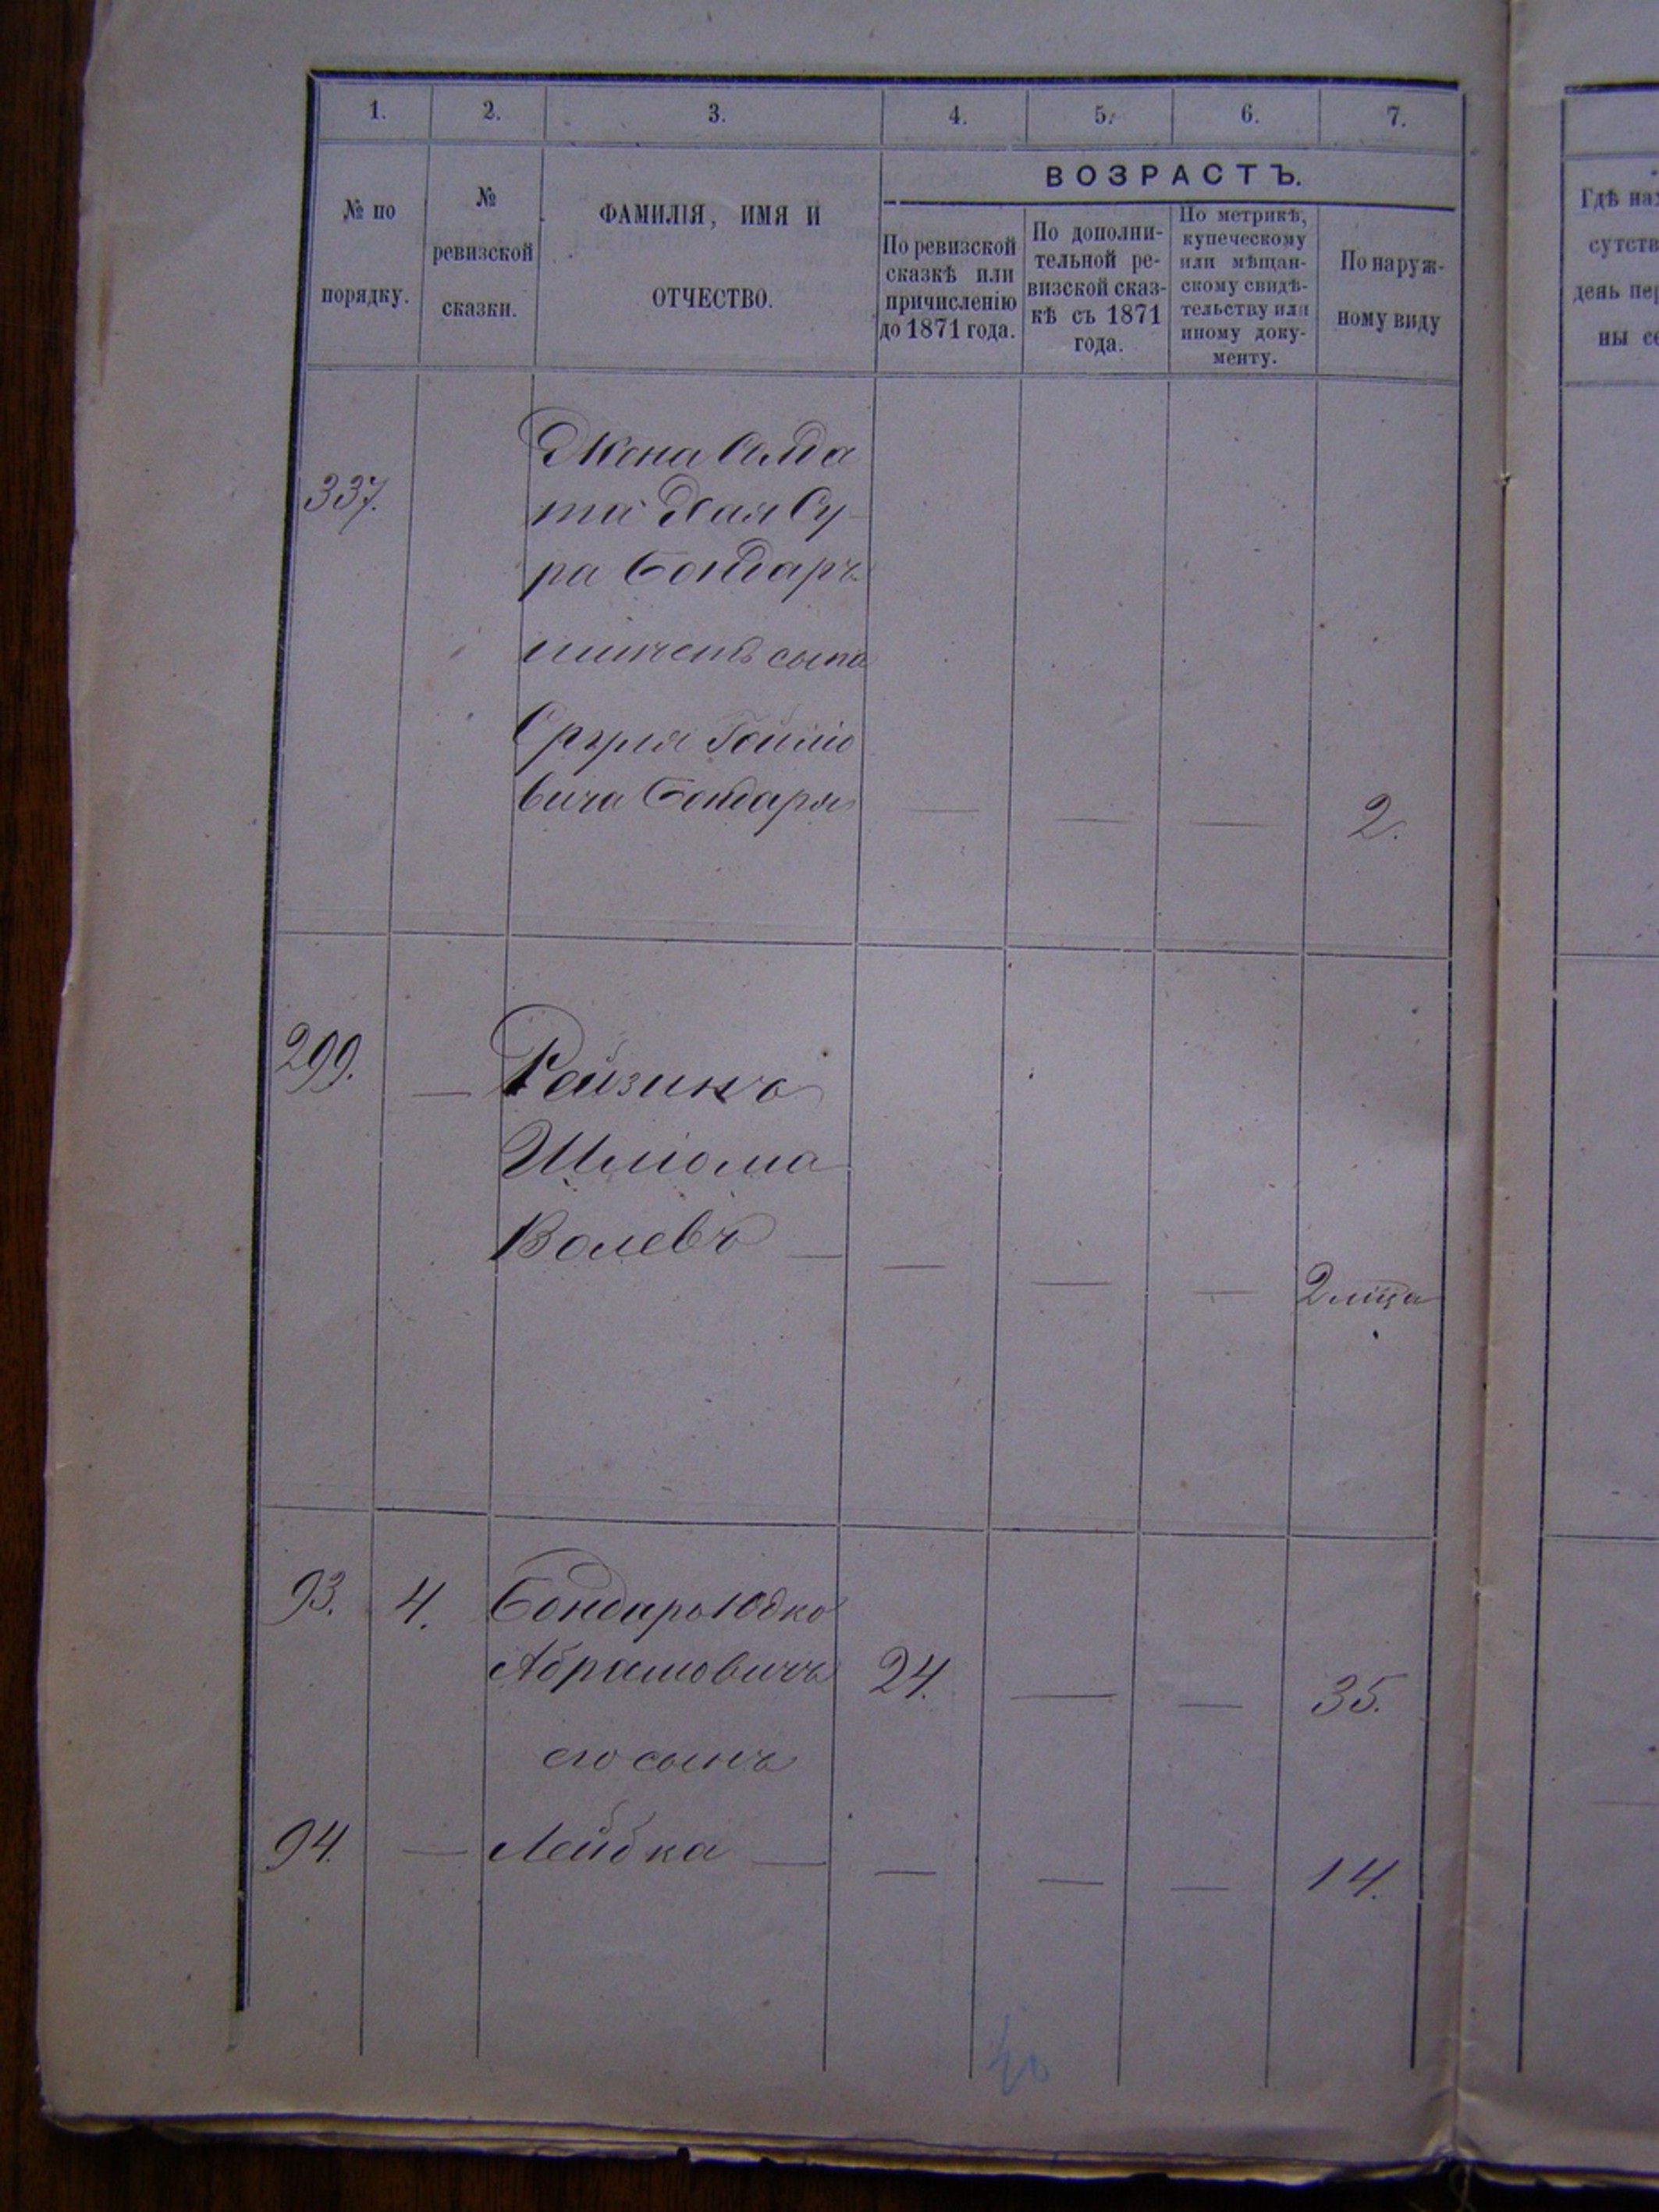 1. 2. 3. 4. 5. 6. 7.
ВОЗРАСТЪ.
№ по
порядку.
№
ревизской
сказки.
ФАМИЛІЯ, ИМЯ И
ОТЧЕСТВО.
По ревизской
сказкѣ или
причисленію
до 1871 года.
По дополни-
тельной ре-
визской сказ-
кѣ съ 1871
года.
По метрикѣ,
купеческому
или мѣщан-
скому свидѣ-
тельству или
иному доку-
менту.
По наруж-
ному виду
Гдѣ
день
337.
Жена Солда
та Хая Су
ра Бондарь
сына
Сруля
вича Бондаря — — — 2.
299. — Рейзинъ
Шлиома
Волевъ — — — — 2 лица
93. 4. Бондарь Юдко
Абрамовичъ 24. — — 35.
его сынъ
94. — Лейбка — — — — 14.